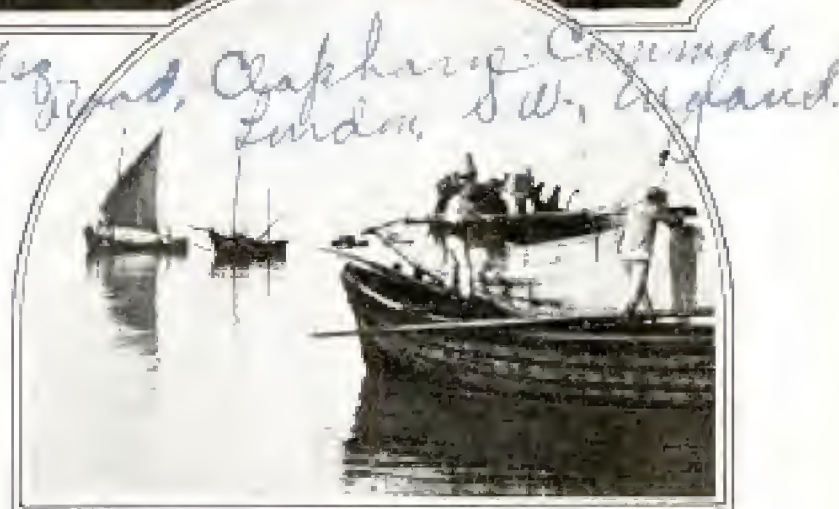 Clapham Common,
London, S.W., England.